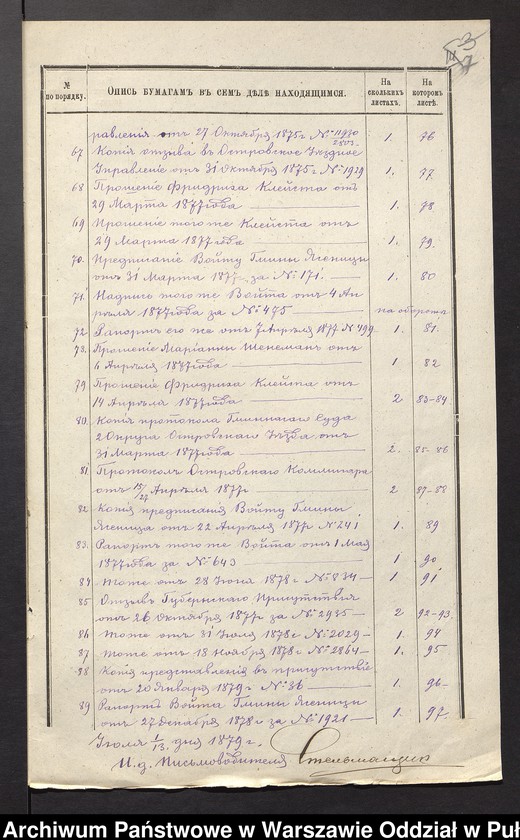 3
№ по порядку.
Опись бумагамъ въ семъ дѣлѣ находящимся.
На сколькихъ листахъ.
На которомъ листѣ.
равленія отъ 27 Октября 1875 г № 11930 1. 76
67 Копія отзыва въ Островское Уѣздное
Управленіе отъ 31 Октября 1875 г № 1929 1. 77
68 Прошеніе Фридриха Клейста отъ
29 Марта 1877 года 1. 78
69 Прошеніе того же Клейста отъ
29 Марта 1877 года 1. 79.
70. Предписаніе Войту Гмины Ясеница
отъ 31 Марта 1877 г. за № 171. 1. 80
71. Надпись того же Войта отъ 4 Ап
рѣля 1877 года за № 475 на оборотѣ
72 Рапортъ его же отъ 7 Апрѣля 1877 № 499 1. 81.
73. Прошеніе Маріанны Шенеманъ отъ
6 Апрѣля 1877 года 1. 82
79 Прошеніе Фридриха Клейста отъ
14 Апрѣля 1877 года 2 83-84
80. Копія протокола Гминнаго Суда
2 Округа Островскаго Уѣзда отъ
31 Марта 1877 года 2. 85-86
81 Протоколъ Островскаго Коммисара
отъ 15/27 Апрѣля 1877 г 2 87-88
82 Копія предписанія Войту Гмины
Ясеница отъ 22 Апрѣля 1877 г № 241 1. 89
83. Рапортъ того же Войта отъ 1 Мая
1877 года за № 643 1 90
84 Тоже отъ 28 Іюня 1878 г № 834 1 91
85 Отзывъ Губернскаго Присутствія
отъ 26 Октября 1877 г за № 2935 2 92-93
86 Тоже отъ 31 Іюля 1878 г № 2029 1. 94
87 Тоже отъ 18 Ноября 1878 г № 2864 1. 95
88 Копія представленія въ присутствіе
отъ 20 Января 1879 г № 36 1. 96
89 Рапортъ Войта Гмины Ясеница
отъ 27 декабря 1878 г за № 1921 1. 97.
Іюля 1/13. дня 1879 г.
И. д. Письмоводителя
Archiwum Państwowe w Warszawie Oddział w Puł